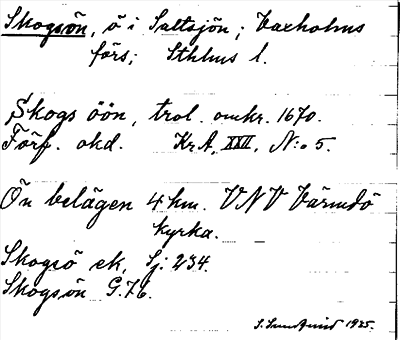 Skogsön, ö i Saltsjön; Vaxholms
förs; Sthlms l.
Skogs öön, trol. omkr. 1670.
Förf. okd. Kr.A. XXII, N:o 5.
Ön belägen 4 km. VNV Värmdö
kyrka.
Skogsö ek. Sj. 234.
Skogsön G.76.
1925.